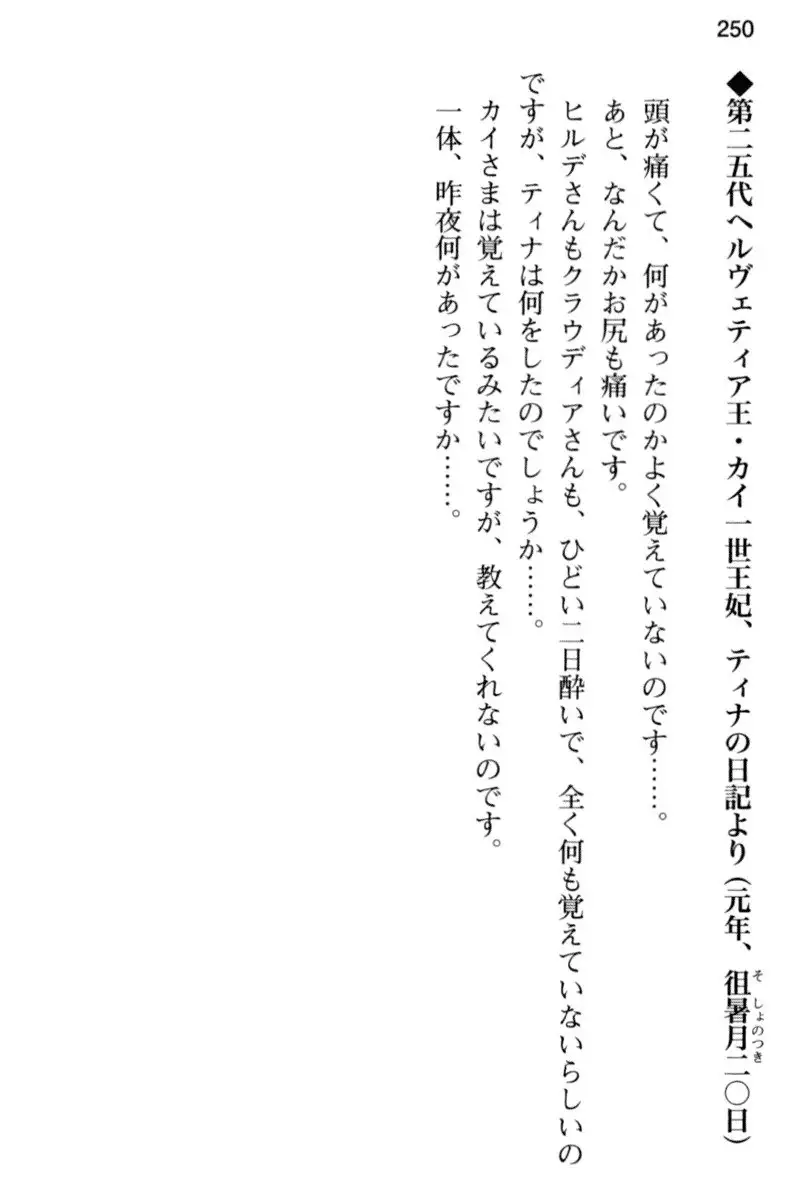 250
◆第二五代ヘルヴェティア王・カイ一世王妃、ティナの日記より（元年、徂暑月二〇日）
そしょのつき
頭が痛くて、何があったのかよく覚えていないのです……。
あと、なんだかお尻も痛いです。
ヒルデさんもクラウディアさんも、ひどい二日酔いで、全く何も覚えていないらしいの
ですが、ティナは何をしたのでしょうか……。
カイさまは覚えているみたいですが、教えてくれないのです。
一体、昨夜何があったですか……。